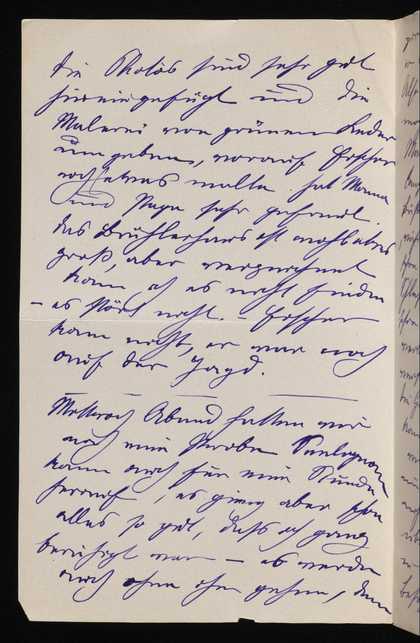 die Photos sind sehr gut
hineingefügt und die
Malerei von grünem Leder
umgeben, worauf Fischer
noch etwas malte hat Mama
und Papa sehr gefreut.
das Brühlerhaus ist wohl etwas
groß, aber verzeichnet
kann ich es nicht finden
– es stört nicht. – Fischer
kam nicht, er war noch
auf der Jagd.
Mittwoch Abend hatten wir
noch eine Probe
kam noch für eine Stunde
herauf, es ging aber schon
alles so gut, daß ich ganz
beruhigt war – es werde
auch ohne ihn gehen, denn